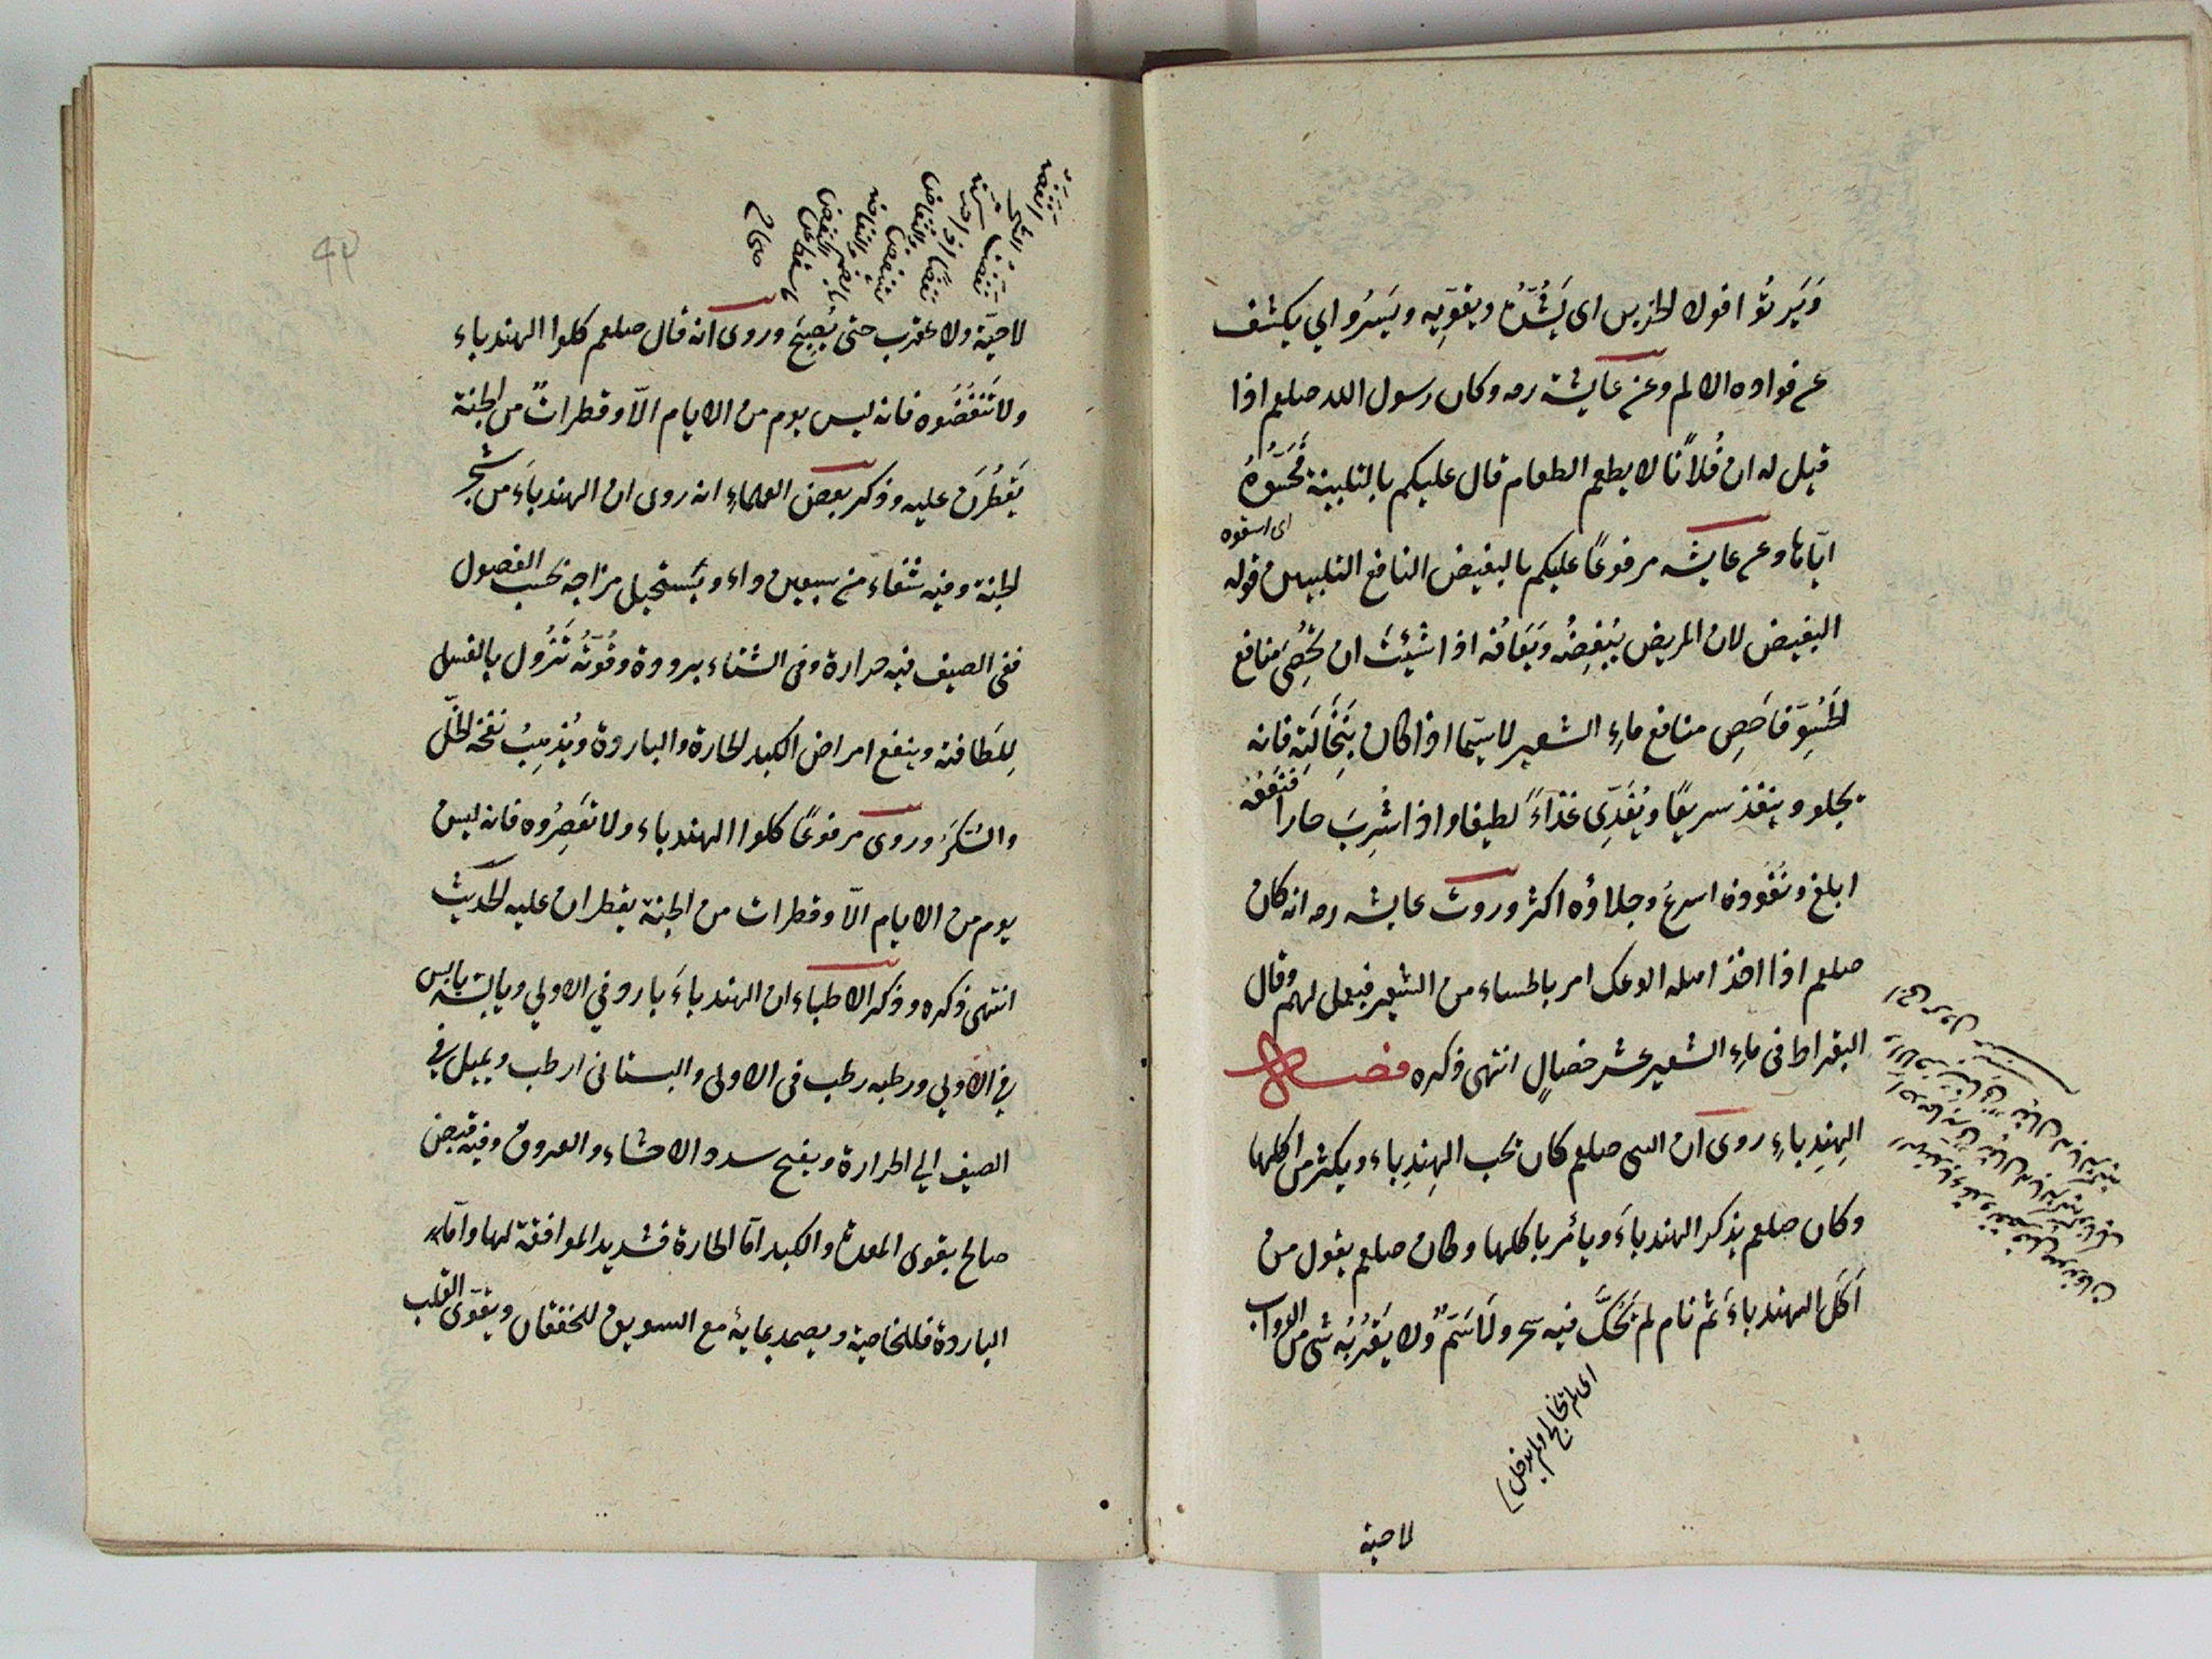 وَيَرتُوا فواد الحزين اى يَشُدُّه ويقوِّيه ويَسِرُوا اي يكشف
عن فواده الالم وعن عايشة رصه وكان رسول الله صلعم اذا
قيل له ان فُلانًا لا يطعم الطعام قال عليكم بالتلبينة فَحَسُّوهُ
اى اسقوه
ايّاها وعن عايشه مرفوعًا عليكم بالبغيض النافع التلبين قوله
البغيض لان المريض يُبْغِضُه ويَعَافُه اذا شِئتَ ان تُحْصِىَ منافع
الحَسُوِّ فاَحصِ منافع ماءِ الشعير لاسيّما اذا كان بِنُخَالَتِه فانه
يجلو وينفذ سريعًا ويُغَذِّى غذاءً لطيفا واذا شُرِبَ حارا فنَفعُه
ابلغ ونُفُوذه اسرعُ وجلاؤه اكثر وروت عايشه رصه انه كان
صلعم اذا اخذ اهله الوعك امر بالحساء من الشعير فيعمل لهم وقال
البقراط فى ماءِ الشعير عشر خصالٍ انتهى ذكره فصل
الهِندِباءِ روى ان النبى صلعم كان يحب الهِندِباء ويكثر من اكلها
وكان صلعم يذكر الهندباءَ ويأمر باكلها وكان صلعم يقول من
اَكَلَ الهندباءَ ثم نام لم يَحُكَّ فيه سحر ولا سَمٌّ ولا يَقْرُبُه شى من الدواب
لا حية
لا حيّة ولا عقرب حتى يُصبِحَ وروى انه قال صلعم كلوا الهندباء
ولا تَنفُضُوه فانه ليس يوم من الايام الاّ وقطراتٌ من الجنة
يَقطُرنَ عليه وذكر بعض العلماءِ انه روى ان الهندباءَ من شجر
الجنة وفيه شفاء من سبعين داء ويَستحيل مزاجه بحسب الفصول
ففى الصيف فيه حرارة وفى الشتاء برودة وقُوَّتُه تَزُول بالغسل
لِلَطافته وينفع امراض الكبد الحارة والباردة ويُذهِبُ نفخه الخلّ
والسُّكَرُ وروى مرفوعًا كلوا الهندباء ولا تَعصِرُوه فانه ليس
يوم من الايام الاّ وقطرات من الجنة يقطران عليه الحديث
انتهى ذكره وذكر الاطباء ان الهندباءَ بارد في الاولي ويابسه يابس
في الاولي ورطبه رطب فى الاولى والبستانى ارطب ويميل في
الصيف الي الحرارة ويفتح سدد الاحشاء والعروق وفيه قبض
صالح يقوى المعدة والكبد اما الحارة فشديد الموافقة لها واما
الباردة فللخاصية ويضمد بمايه مع السويق للخفقان ويقوّى القلب